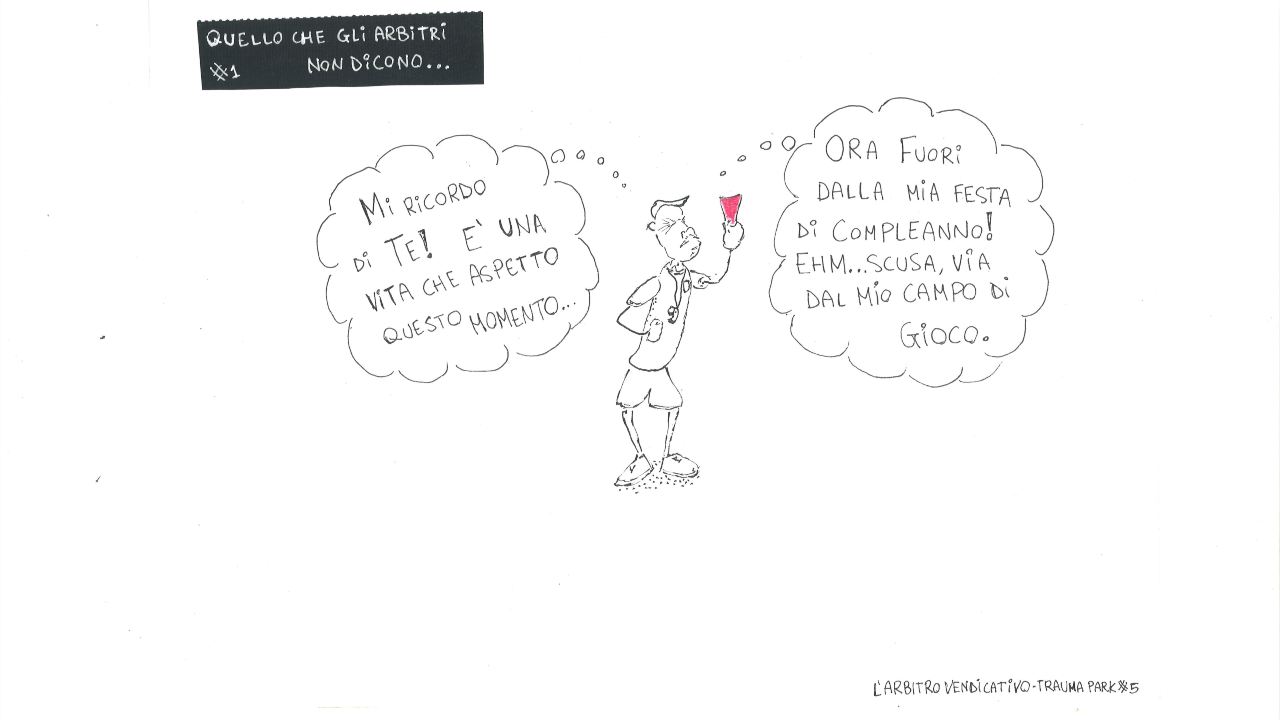 QUELLO CHE GLI ARBITRI
#1 NON DICONO...
MI RICORDO
DI TE! E' UNA
VITA CHE ASPETTO
QUESTO MOMENTO...
ORA FUORI
DALLA MIA FESTA
DI COMPLEANNO!
EHM...SCUSA, VIA
DAL MIO CAMPO DI
GIOCO.
L'ARBITRO VENDICATIVO-TRAUMA PARK#5